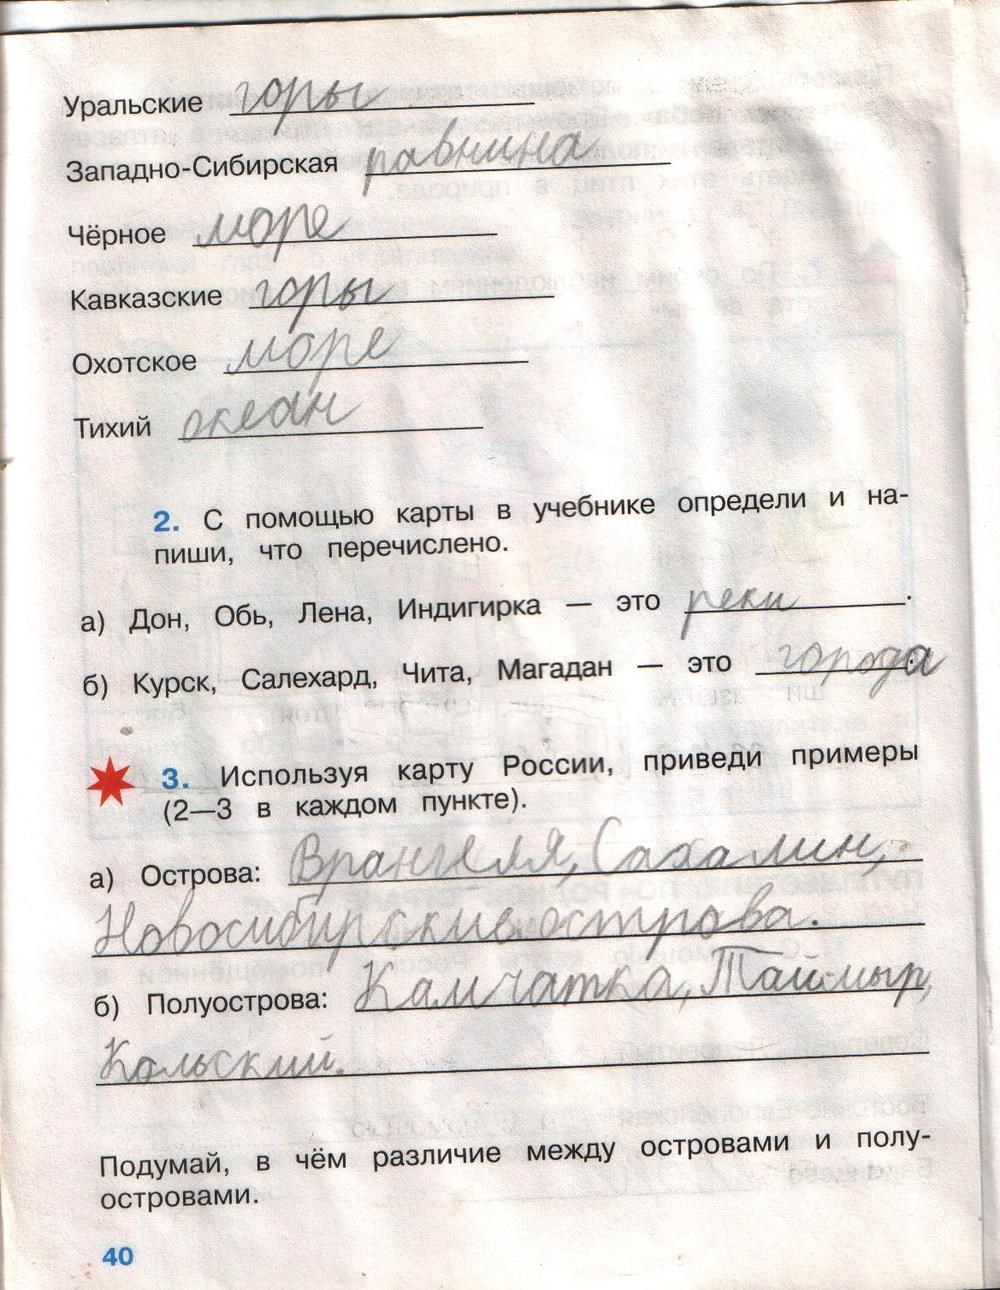 Уральские горы
Западно-Сибирская равнина
Чёрное море
Кавказские горы
Охотское море
Тихий океан
2. С помощью карты в учебнике определи и на-
пиши, что перечислено.
а) Дон, Обь, Лена, Индигирка — это реки.
б) Курск, Салехард, Чита, Магадан — это города
3. Используя карту России, приведи примеры
(2—3 в каждом пункте).
а) Острова: Врангеля, Сахалин,
Новосибирские острова.
б) Полуострова: Камчатка, Таймыр,
Кольский.
Подумай, в чём различие между островами и полу-
островами.
40